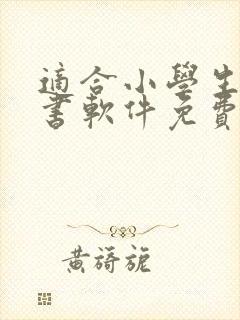 適合小學生
書軟件免費
黃旖旎